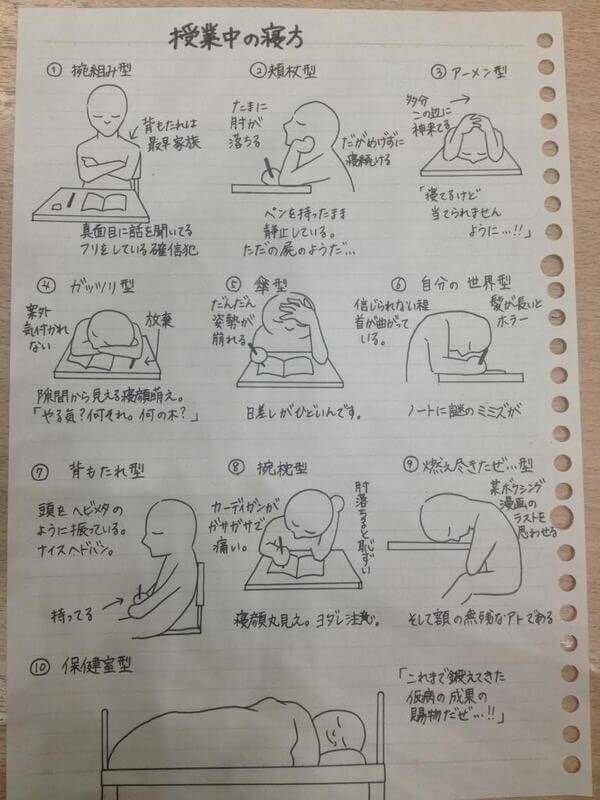 授業中の寝方
① 腕組み型
背もたれは
最早家族
真面目に話を聞いてる
フリをしている確信犯
② 頬杖型
たまに
肘が
落ちる
だがめげずに
寝続ける
ペンを持ったまま
静止している。
ただの屍のようだ…
③ アーメン型
多分
この辺に
神来てる
「寝てるけど
当てられません
ように…!!」
④ ガッツリ型
案外
気付かれ
ない
放棄
隙間から見える寝顔萌え。
「やる気?何それ。何の木?」
⑤ 傘型
だんだん
姿勢が
崩れる
日差しがひどいんです。
⑥ 自分の世界型
信じられない程
首が曲がって
いる。
髪が長いと
ホラー
ノートに謎のミミズが
⑦ 背もたれ型
頭をヘビメタ
のように振っている。
ナイスヘドバン。
持ってる
⑧ 腕枕型
カーディガンが
ガサガサで
痛い。
肘落ちると恥ずい
寝顔丸見え。ヨダレ注意。
⑨ 燃え尽きたぜ…型
某ボクシング
漫画の
ラストを
思わせる
そして額の無残なアトである
⑩ 保健室型
「これまで鍛えてきた
仮病の成果の
賜物だぜ…!!」